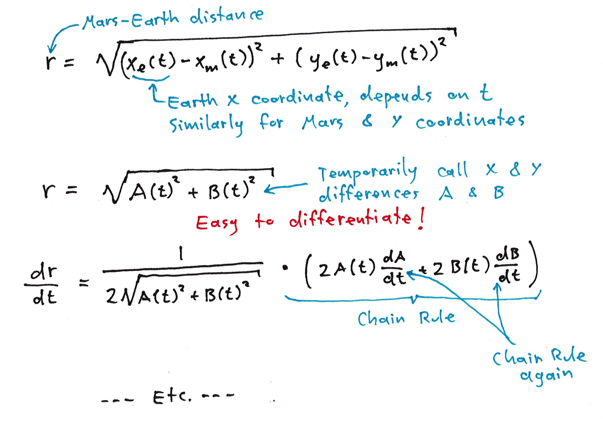 Mars-Earth distance
r = √((xₑ(t) - xₘ(t))² + (yₑ(t) - yₘ(t))²)
Earth x coordinate, depends on t
Similarly for Mars & Y coordinates
r = √(A(t)² + B(t)²)
Temporarily call X & Y
differences A & B
Easy to differentiate!
dr/dt = 1/(2√(A(t)² + B(t)²)) • (2A(t) dA/dt + 2B(t) dB/dt)
Chain Rule
Chain Rule
again
--- Etc. ---